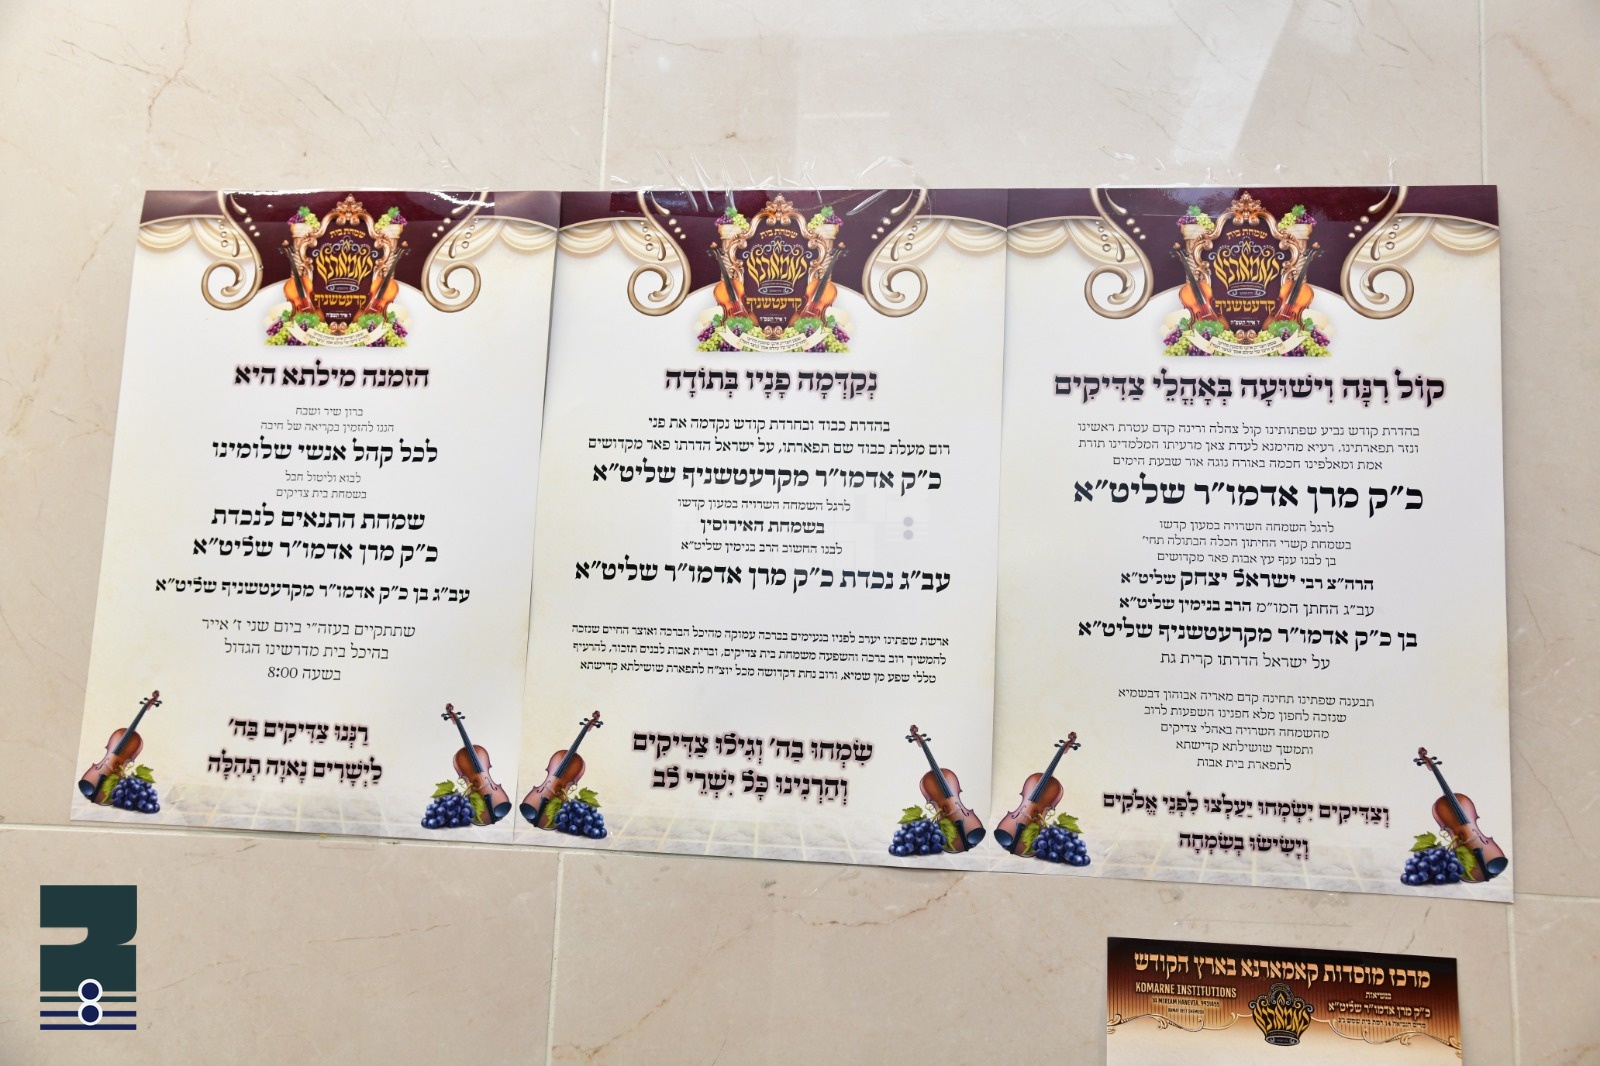 שמחת בית
קאמארנא
קרעטשניף
ז' אייר תשפ"ח
קוֹל רִנָּה וִישׁוּעָה בְּאָהֳלֵי צַדִּיקִים
בהדרת קודש נביע שפתותינו קול צהלה ורינה קדם עטרת ראשינו
ונזר תפארתינו, רעיא מהימנא לעדת צאן מרעיתו המלמדינו תורת
אמת ומאלפינו חכמה באורה נוגה אור שבעת הימים
כ"ק מרן אדמו"ר שליט"א
לרגל השמחה השרויה במעון קדשו
בשמחת קשרי החיתון הכלה הבתולה תחי'
בן לבנו ענף עץ אבות פאר מקדושים
הרה"צ רבי ישראל יצחק שליט"א
עב"ג החתן המו"מ הרב בנימין שליט"א
בן כ"ק אדמו"ר מקרעטשניף שליט"א
על ישראל הדרתו קרית גת
תבענה שפתינו תחינה קדם מאריה אבוהון דבשמיא
שנזכה לחפון מלא חפנינו השפעות לרוב
מהשמחה השרויה באהלי צדיקים
ותמשך שושילתא קדישתא
לתפארת בית אבות
וְצַדִּיקִים יִשְׂמְחוּ יַעַלְצוּ לִפְנֵי אֱלֹקִים
וְיָשִׂישׂוּ בְשִׂמְחָה
שמחת בית
קאמארנא
קרעטשניף
נְקַדְּמָה פָנָיו בְּתוֹדָה
בהדרת כבוד ובחרדת קודש נקדמה את פני
רום מעלת כבוד שם תפארתו, על ישראל הדרתו פאר מקדושים
כ"ק אדמו"ר מקרעטשניף שליט"א
לרגל השמחה השרויה במעון קדשו
בשמחת האירוסין
לבנו החשוב הרב בנימין שליט"א
עב"ג נכדת כ"ק מרן אדמו"ר שליט"א
ארשת שפתינו יערב לפניו בנעימים בברכה עמוקה מהיכל הברכה ואוצר החיים שנזכה
להמשיך רוב ברכה והשפעה משמחת בית צדיקים, וברית אבות לבנים תזכור, להרעיף
טללי שפע מן שמיא, ורוב נחת דקדושה מכל יוצ"ח לתפארת שושילתא קדישתא
שִׂמְחוּ בַה' וְגִילוּ צַדִּיקִים
וְהַרְנִינוּ כָּל יִשְׁרֵי לֵב
שמחת בית
קאמארנא
קרעטשניף
הזמנה מילתא היא
ברון שיר ושבח
הננו להזמין בקריאה של חיבה
לכל קהל אנשי שלומינו
לבוא וליטול חבל
בשמחת בית צדיקים
שמחת התנאים לנכדת
כ"ק מרן אדמו"ר שליט"א
עב"ג בן כ"ק אדמו"ר מקרעטשניף שליט"א
שתתקיים בעזה"י ביום שני ז' אייר
בהיכל בית מדרשינו הגדול
בשעה 8:00
רַנְּנוּ צַדִּיקִים בַּה'
לַיְשָׁרִים נָאוָה תְהִלָּה
מרכז מוסדות קאמארנא בארץ הקודש
בנשיאות
כ"ק מרן אדמו"ר שליט"א
KOMARNE INSTITUTIONS
קאמארנא
8